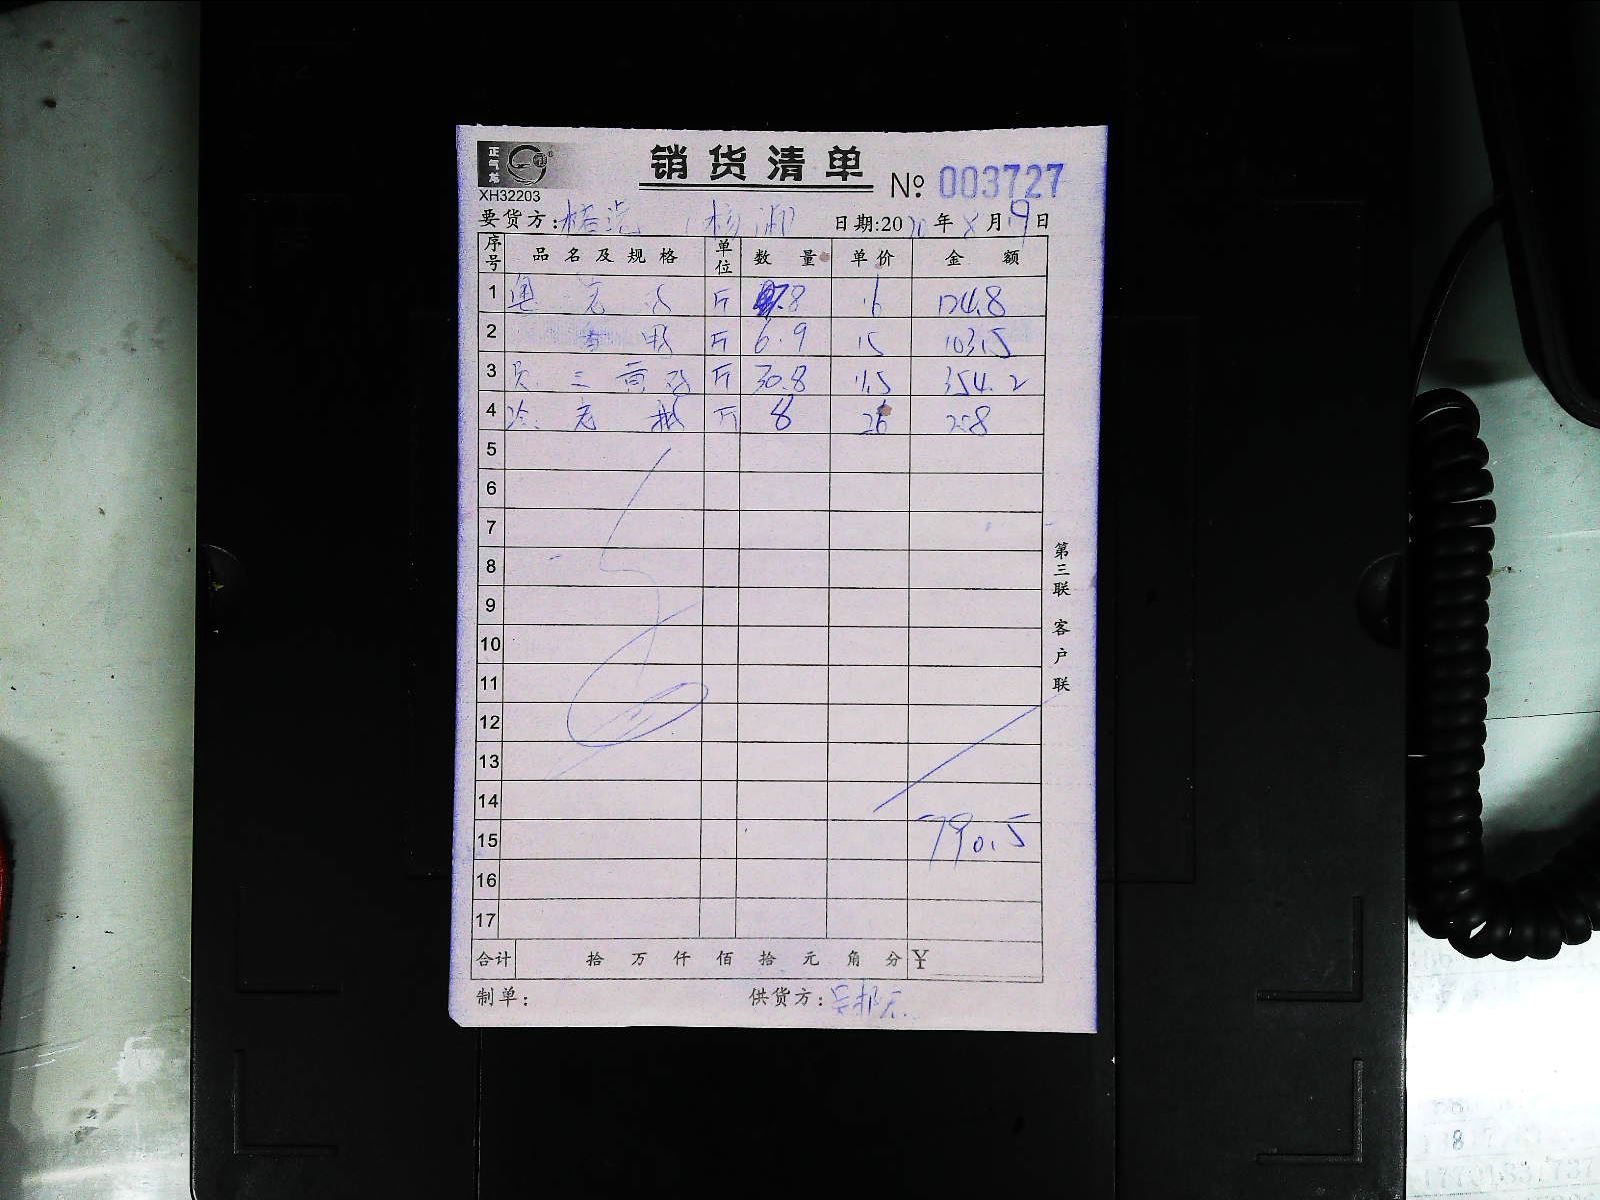 正气龙
销货清单 № 003727
XH32203
要货方: 日期:20 年 月19日
序号 品名及规格 单位 数量 单价 金额
1 斤 7.8 16 124.8
2 香 斤 6.9 15 103.5
3 三黄鸡 斤 30.8 11.5 354.2
4 冷 老 斤 8 26 208
5
6
7
8
9
10
11
12
13
14
15 790.5
16
17
合计 拾万仟佰拾元角分 ¥
制单: 供货方:
第三联 客户联